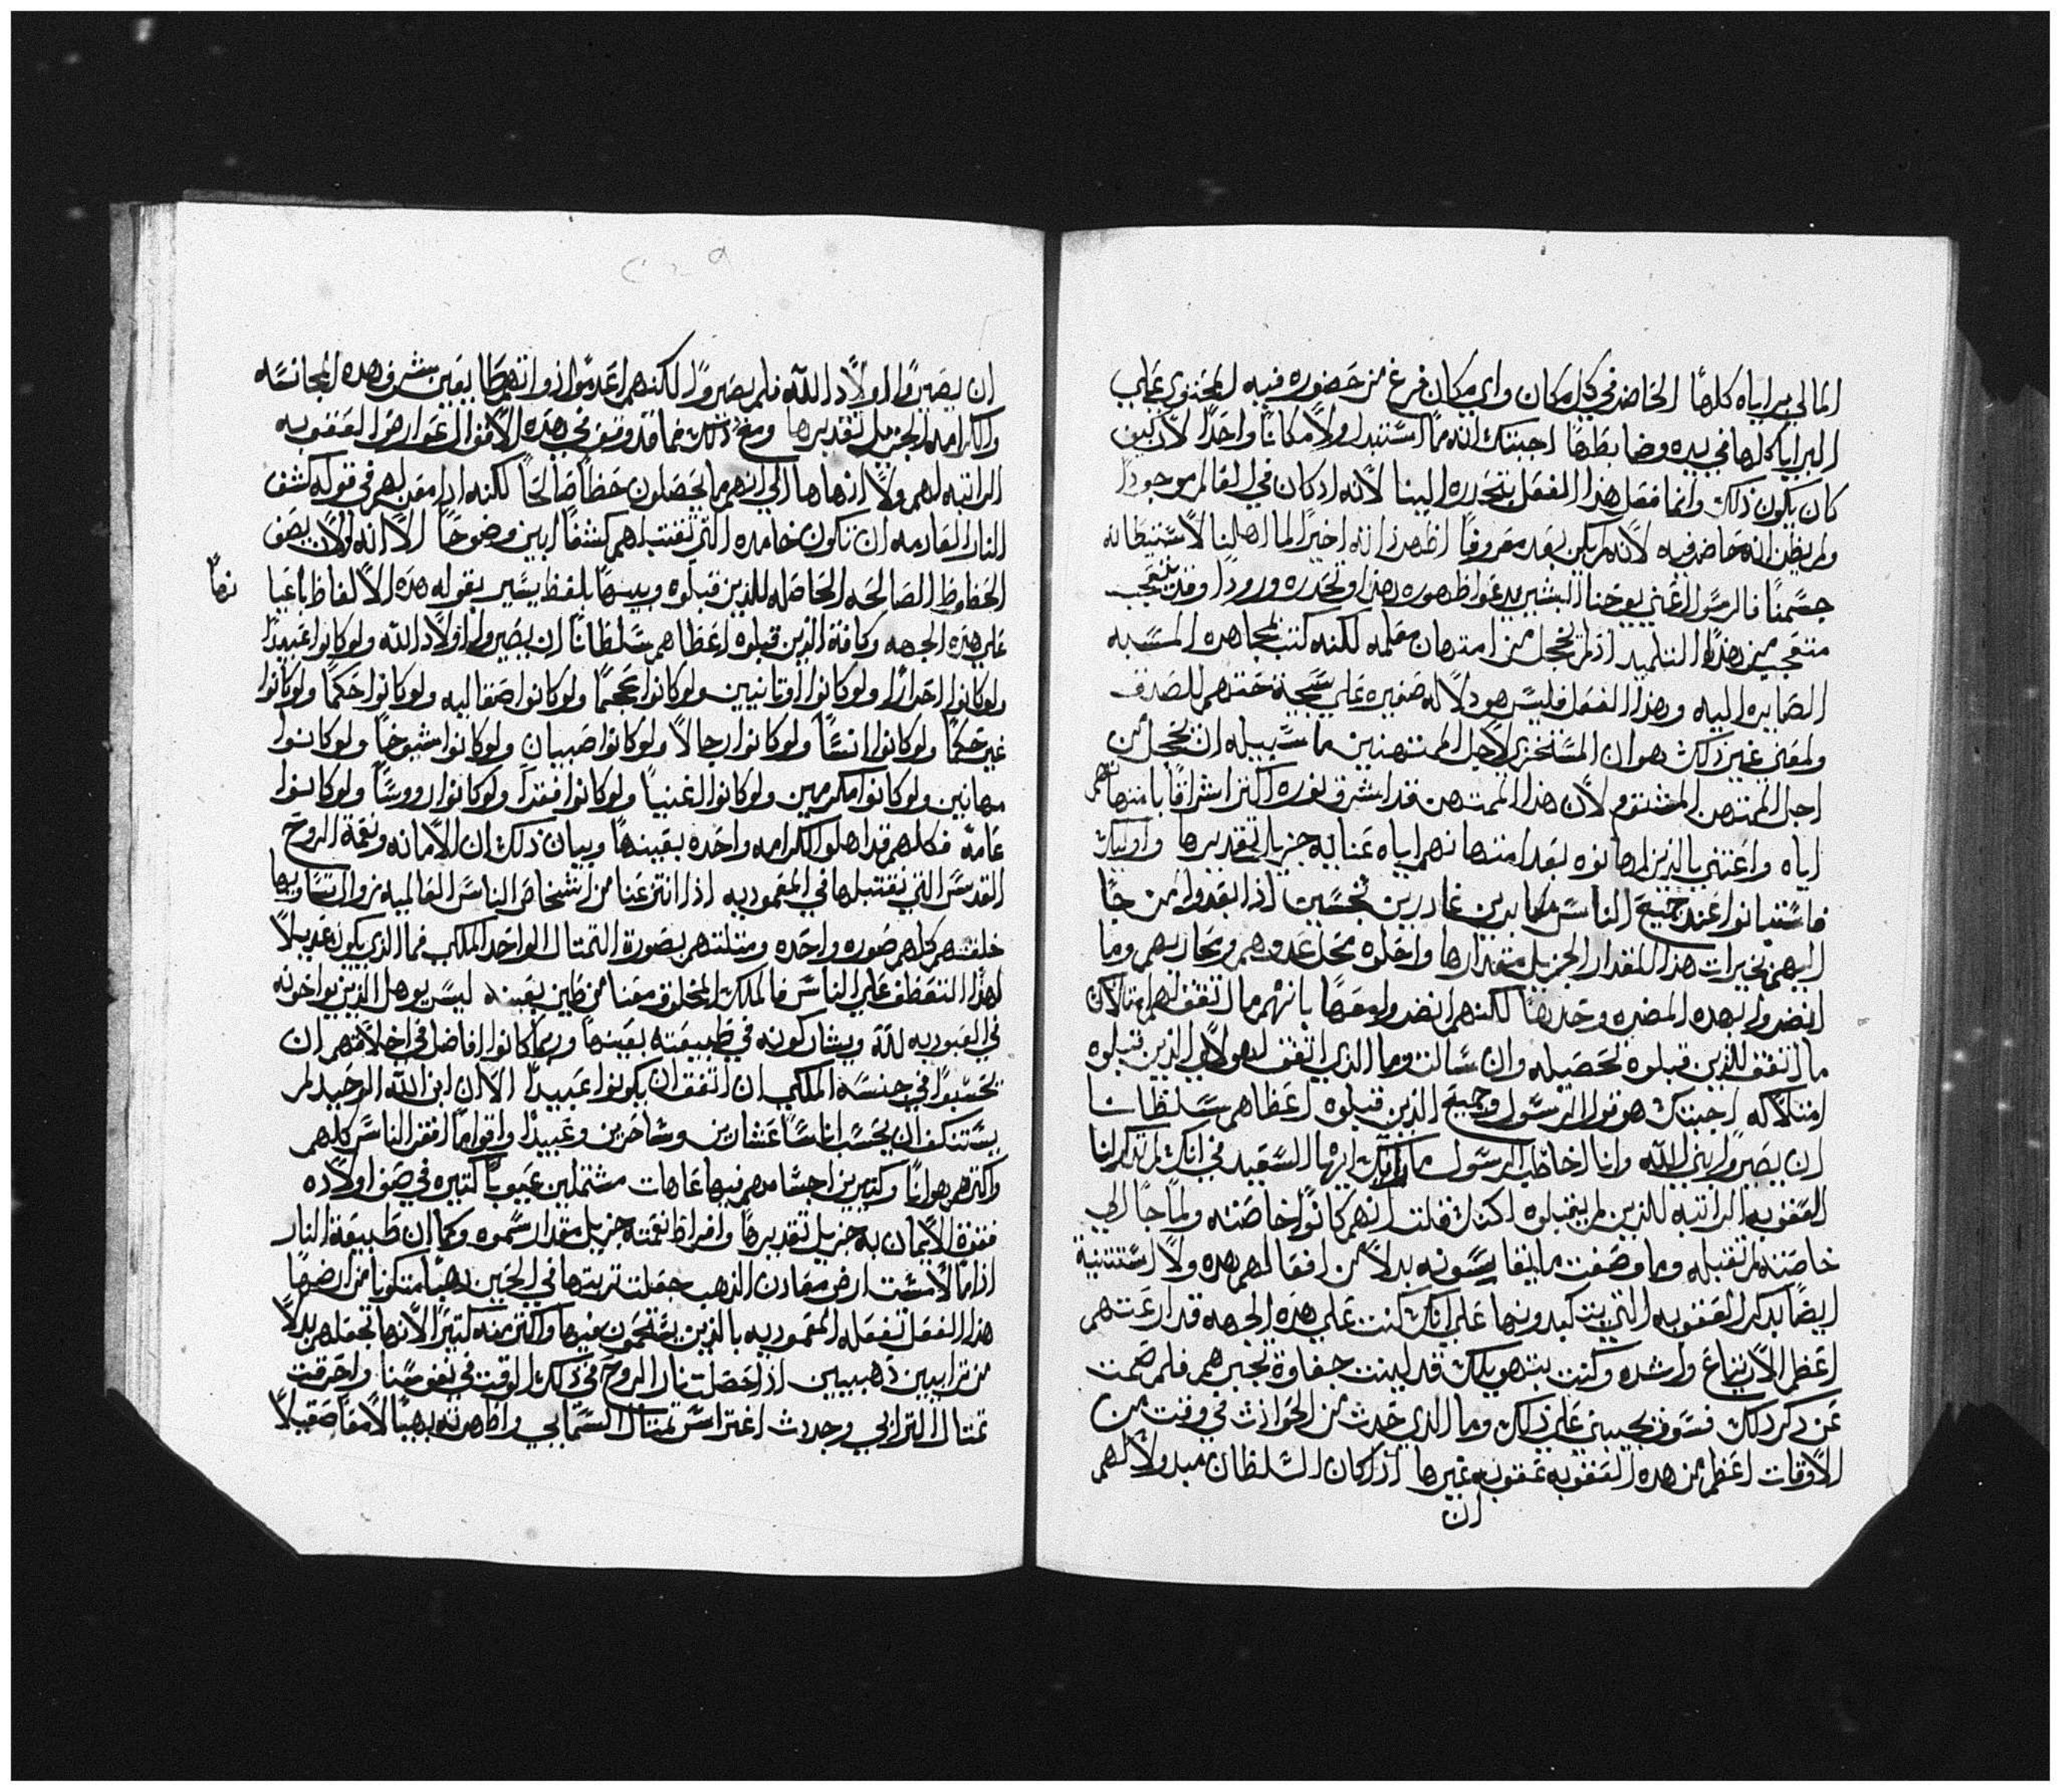 المالي براياه كلها الحاضر في كل مكان واي مكان فرغ من حضوره فيه المحتوي علي
البرايا كلها في يده وضابطها اجبتك انه ما استبدل ولا مكانا واحدا لان كيف
كان يكون ذلك وانما فعل هذا الفعل بتحدره الينا لانه اذ كان في العالم موجودا
ولم يظن انه حاضر فيه لانه لم يكن بعد معروفا اظهر ذاته اخيرا لما اهلنا لاستبطانه
جسمنا فالرسول اعني يوحنا البشير يدعوا ظهوره هذا وتحدره ورودا وقد يتعجب
متعجب من هذا التلميد اذ لم يخجل من امتهان معلمه لكنه كتب المجاهده المسبه
الصايره اليه وهذا الفعل فليس هو دلاله صغيره علي سجية حبتهم للصدق
ولمعني غير ذلك هو ان المستخزي لاجل الممتهنين ما سبيله ان يخجل من
اجل الممتهن المشتوم لان هذا الممتهن قد اشرق نوره اكثر اشراقا بامتهانهم
اياه واعتني بالذين اهانوه بعد امتهانهم اياه عنايه جزيل تقديرها واوليك
فاستبانوا عند جميع الناس مكابدين غادرين نجسين اذ ابعدوا من جا
اليهم بخيرات هذا المقدار الجزيل مقدارها واحلوه محل عدوهم ومحاربهم وما
انضروا بهده المضره وحدها لكنهم انضروا معها بانهم ما اتفق لهم امتلاك
ما اتفق للذين قبلوه تحصيله وان سالت وما الذي اتفق لهولاي الذين قبلوه
امتلاكه اجبتك هو قول الرسول وجميع الذين قبلوه اعطاهم سلطانا
ان يصيروا بني الله وانا اخاطب الرسول ما بالك ايها السعيد في انك لم تذكر لنا
العقوبه الراتبه للذين لم يقبلوه لكنك قلت انهم كانوا خاصته ولما جا الي
خاصته لم تقبله وما وصفت ما يقاسونه بدلا من افعالهم هده ولا استثنيت
ايضا بدكر العقوبه التي يتكبدونها علي انك لو كنت علي هده الجهه قد ارعبتهم
اعظم الارتياع واشده وكنت بتهويلك قد لينت جفاوة تجبرهم فلم صمت
عن دكر دلك فسوف يجيبني علي ذلك وما الذي حدث من الحوادث في وقت من
الاوقات اعظم من هده العقوبه عقوبه غيرها اذ كان السلطان مبدولا لهم
ان
ان يصيروا اولاد الله فلم يصيروا لكنهم اعدموا ذواتهم طايعين شرف هده المجانسه
والكرامه الجزيل تقديرها ومع ذلك فما قد وقف في هده الاقوال عوارض العقوبه
الراتبه لهم ولا انهاها الي انهم ما يحصلون حظا صالحا لكنه اذ امعن لهم في قوله كشف
النار العادمه ان تكون خامده التي تقتبلهم كشفا ابين وضوحا الا انه الان يصف
الحظوظ الصالحه الحاصله للذين قبلوه ويبينها بلفظ يسير بقوله هده الالفاظ باعيا
نها
علي هده الجهه وكافة الذين قبلوه اعطاهم سلطانا ان يصيروا اولاد الله ولو كانوا عبيدا
ولو كانوا احرارا ولو كانوا اوتانيين ولو كانوا عجما ولو كانوا صقالبه ولو كانوا حكما ولو كانوا
غير حكما ولو كانوا انسا ولو كانوا رجالا ولو كانوا صبيان ولو كانوا شيوخا ولو كانوا
مهانين ولو كانوا مكرمين ولو كانوا اغنيا ولو كانوا فقرا ولو كانوا رووسا ولو كانوا
عامة فكلهم قد اهلوا لكرامه واحده بعينها وبيان ذلك ان الامانه ونعمة الروح
القدس التي نقتبلها في المعموديه اذا انتزعتا من اشخاص الناس العالميه زوال تساويها
خلقتهم كلهم صوره واحده ومثلتهم بصورة التمثال الواحد الملكي فما الذي يكون عديلا
لهدا التعطف علي الناس فالملك المخلوق معنا من طين بعينه ليس يوهل الذين يواخونه
في العبوديه لله ويشاركونه في طبيعته بعينها وربما كانوا افاضل في اخلاقهم ان
يحسبوا في جنسه الملكي ان اتفق ان يكونوا عبيدا الا ان ابن الله الوحيد لم
يستنكف ان يحسب اناسا عشارين وساحرين وعبيدا واقواما افقر الناس كلهم
واكثرهم هوانا وكثيرين اجسامهم فيها عاهات مشتملين عيوبا كثيره في صف اولاده
فقوة الايمان به جزيل تقديرها وافراط نعمته جزيل مقدار سموه وكما ان طبيعة النار
اذا ما لامست ارض معادن الذهب جعلت تربتها في الحين ذهبا متكونا من ارضها
هذا الفعل تفعله المعموديه بالذين يقتحمون فيها واكثر منه كثيرا لانها تجعلهم بدلا
من ترابيين ذهبيين اذا حصلت نار الروح في دلك الوقت في نفوسنا واحرقت
تمثال الترابي وجددت اغتراس تمثال السمايي واظهرته بهيا لامعا صقيلا